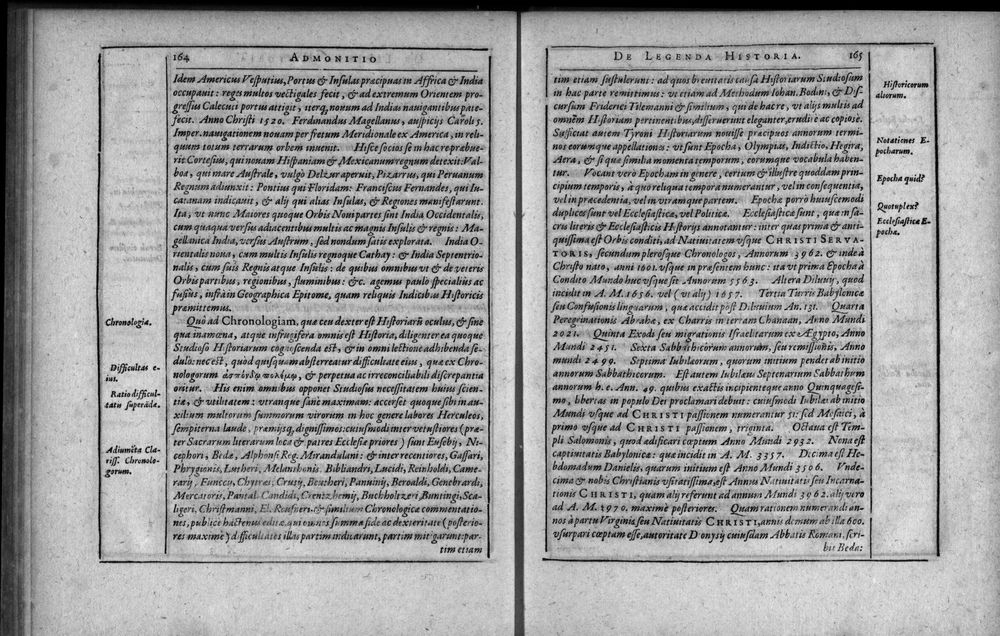 164 ADMONITIO
Idem Americus Vesputius, Portus & Insulas præcipuas in Affrica & India
occupauit: reges multos vectigales fecit, & ad extremum Orientem pro-
gressus Calecuti portus attigit, iterq, nouum ad Indias nauigantibus pate-
fecit. Anno Christi 1520. Ferdinandus Magellanus, auspicijs Caroli 5.
Imper. nauigationem nouam per fretum Meridionale ex America, in reli-
quum totum terrarum orbem inuenit. Hisce socios se in hac re præbue-
rit Cortesius, qui nouam Hispaniam & Mexicanum regnum detexit: Val-
boa, qui mare Australe, vulgò Delzur aperuit, Pizarrus, qui Peruanum
Regnum adiunxit: Pontius qui Floridam: Franciscus Fernandes, qui Iu-
catanam indicauit, & alij qui alias Insulas, & Regiones manifestarunt.
Ita, vt nunc Maiores quoque Orbis Noui partes sint India Occidentalis,
cum quaqua versus adiacentibus multis ac magnis Insulis & regnis: Ma-
gellanica India, versus Austrum, sed nondum satis explorata. India O-
rientalis noua, cum multis Insulis regnoque Cathay: & India Septentrio-
nalis, cum suis Regnis atque Insulis: de quibus omnibus vt & de veteris
Orbis partibus, regionibus, fluminibus: &c. agemus paulo specialius ac
fusius, infrà in Geographica Epitome, quam reliquis Indicibus Historicis
præmittemus.
Chronologia.
Quo ad Chronologiam, quæ ceu dexter est Historiaru oculus, & sine
qua inamœna, atque infrugifera omnis est Historia, diligenter ea quoque
Studioso Historiarum cognoscenda est, & in omni lectione adhibenda se-
dulo: nec est, quòd quisquam absterreatur difficultate eius, quæ ex Chro-
Difficultas e-
ius.
nologorum & perpetua ac irreconciliabili discrepantia
oritur. His enim omnibus opponet Studiosus necessitatem huius scien-
Ratio difficul-
tatis superãdæ.
tiæ, & vtilitatem: vtranque sanè maximam: accerset quoque sibi in au-
xilium multorum summorum virorum in hoc genere labores Herculeos,
sempiterna laude, præmijsq, dignissimos: cuiusmodi inter vetustiores (præ-
ter Sacrarum literarum loca & patres Ecclesiæ priores) sunt Eusebij, Ni-
Adiumẽta Cla-
riss. Chronolo-
gorum.
cephori, Bedæ, Alphonsi Reg. Mirandulani: & inter recentiores, Gassari,
Phrygionis, Lutheri, Melanthonis. Bibliandri, Lucidi, Reinholdi, Came-
rarij, Funccij, Chytræi, Crusij, Beutheri, Panuinij, Beroaldi, Genebrardi,
Mercatoris, Pantal. Candidi, Crentzhemij, Buchholtzeri, Buntingi, Sca-
ligeri, Christmanni, El. Reusneri. & similium Chronologica commentatio-
nes, publicè hactenus editæ, qui omnes summa fide ac dexteritate (posterio-
res maximè) difficultates illas partim indicarunt, partim mitigarunt: par-
tim etiam
DE LEGENDA HISTORIA. 165
tim etiam sustulerunt: ad quos breuitatis causa Historiarum Studiosum
Historicorum
aliorum.
in hac parte remittimus: vt etiam ad Methodum Iohan. Bodini, & Dis-
cursum Friderici Tilemanni & similium, qui de hac re, vt alijs multis ad
omnẽm Historiam pertinentibus, disseruerunt eleganter, erudite ac copiose.
Sufficiat autem Tyroni Historiarum nouisse præcipuos annorum termi-
Notationes E-
pocharum.
nos eorumque appellationes: vt sunt Epocha, Olympias, Indictio, Hegira,
Aera, & si quæ similia momenta temporum, eorumque vocabula haben-
tur. Vocant verò Epocham in genere, certum & illustre quoddam prin-
Epocha quid?
cipium temporis, à quo reliqua tempora numerantur, vel in consequentia,
vel in præcedentia, vel in vtramque partem. Epochæ porro huiuscemodi
Quotuplex?
duplices sunt vel Ecclesiasticæ, vel Politicæ. Ecclesiasticæ sunt, quæ in sa-
Ecclesiasticæ E-
pocha.
cris literis & Ecclesiasticis Historijs annotantur: inter quas prima & anti-
quissima est Orbis conditi, ad Natiuitatem vsque CHRISTI SERVA-
TORIS, secundum plerosque Chronologos, Annorum 3962. & inde à
Christo nato, anni 1601. vsque in præsentem hunc: ita vt prima Epocha à
Condito Mundo huc vsque sit Annorum 5563. Altera Diluuij, quod
incidit in A. M. 1656. vel (vt alij) 1657. Tertia Turris Babylonicæ
seu Confusionis linguarum, quæ accidit pòst Diluuium An. 131. Quarta
Peregrinationis Abrahæ, ex Charris in terram Chanaan, Anno Mundi
2021. Quinta Exodi seu migrationis Israelitarum ex Ægypto, Anno
Mundi 2451. Sexta Sabbathicorum annorum, seu remissionis, Anno
mundi 2499. Septima Iubilæorum, quorum initium pendet ab initio
annorum Sabbathicorum. Est autem Iubilæus Septenarium Sabbathum
annorum h. e. Ann. 49. quibus exactis incipiente que anno Quinquagesi-
mo, libertas in populo Dei proclamari debuit: cuiusmodi Iubilæi ab initio
Mundi vsque ad CHRISTI passionem numerantur 51: sed Mosaici, à
primo vsque ad CHRISTI passionem, triginta. Octaua est Tem-
pli Salomonis, quod ædificari cœptum Anno Mundi 2932. Nona est
captiuitatis Babylonicæ: quæ incidit in A. M. 3357. Decima est He-
bdomadum Danielis, quarum initium est Anno Mundi 3506. Vnde-
cima & nobis Christianis vsitatissima, est Annus Natiuitatis seu Incarna-
tionis CHRISTI, quam alij referunt ad annum Mundi 3962. alij vero
ad A. M. 1970. maximè posteriores. Quam rationem numerandi an-
nos à partu Virginis, seu Natiuitatis CHRISTI, annis demum ab illa 600.
vsurpari cœptam esse, autoritate Dionysij cuiusdam Abbatis Romani, scri-
bit Beda: